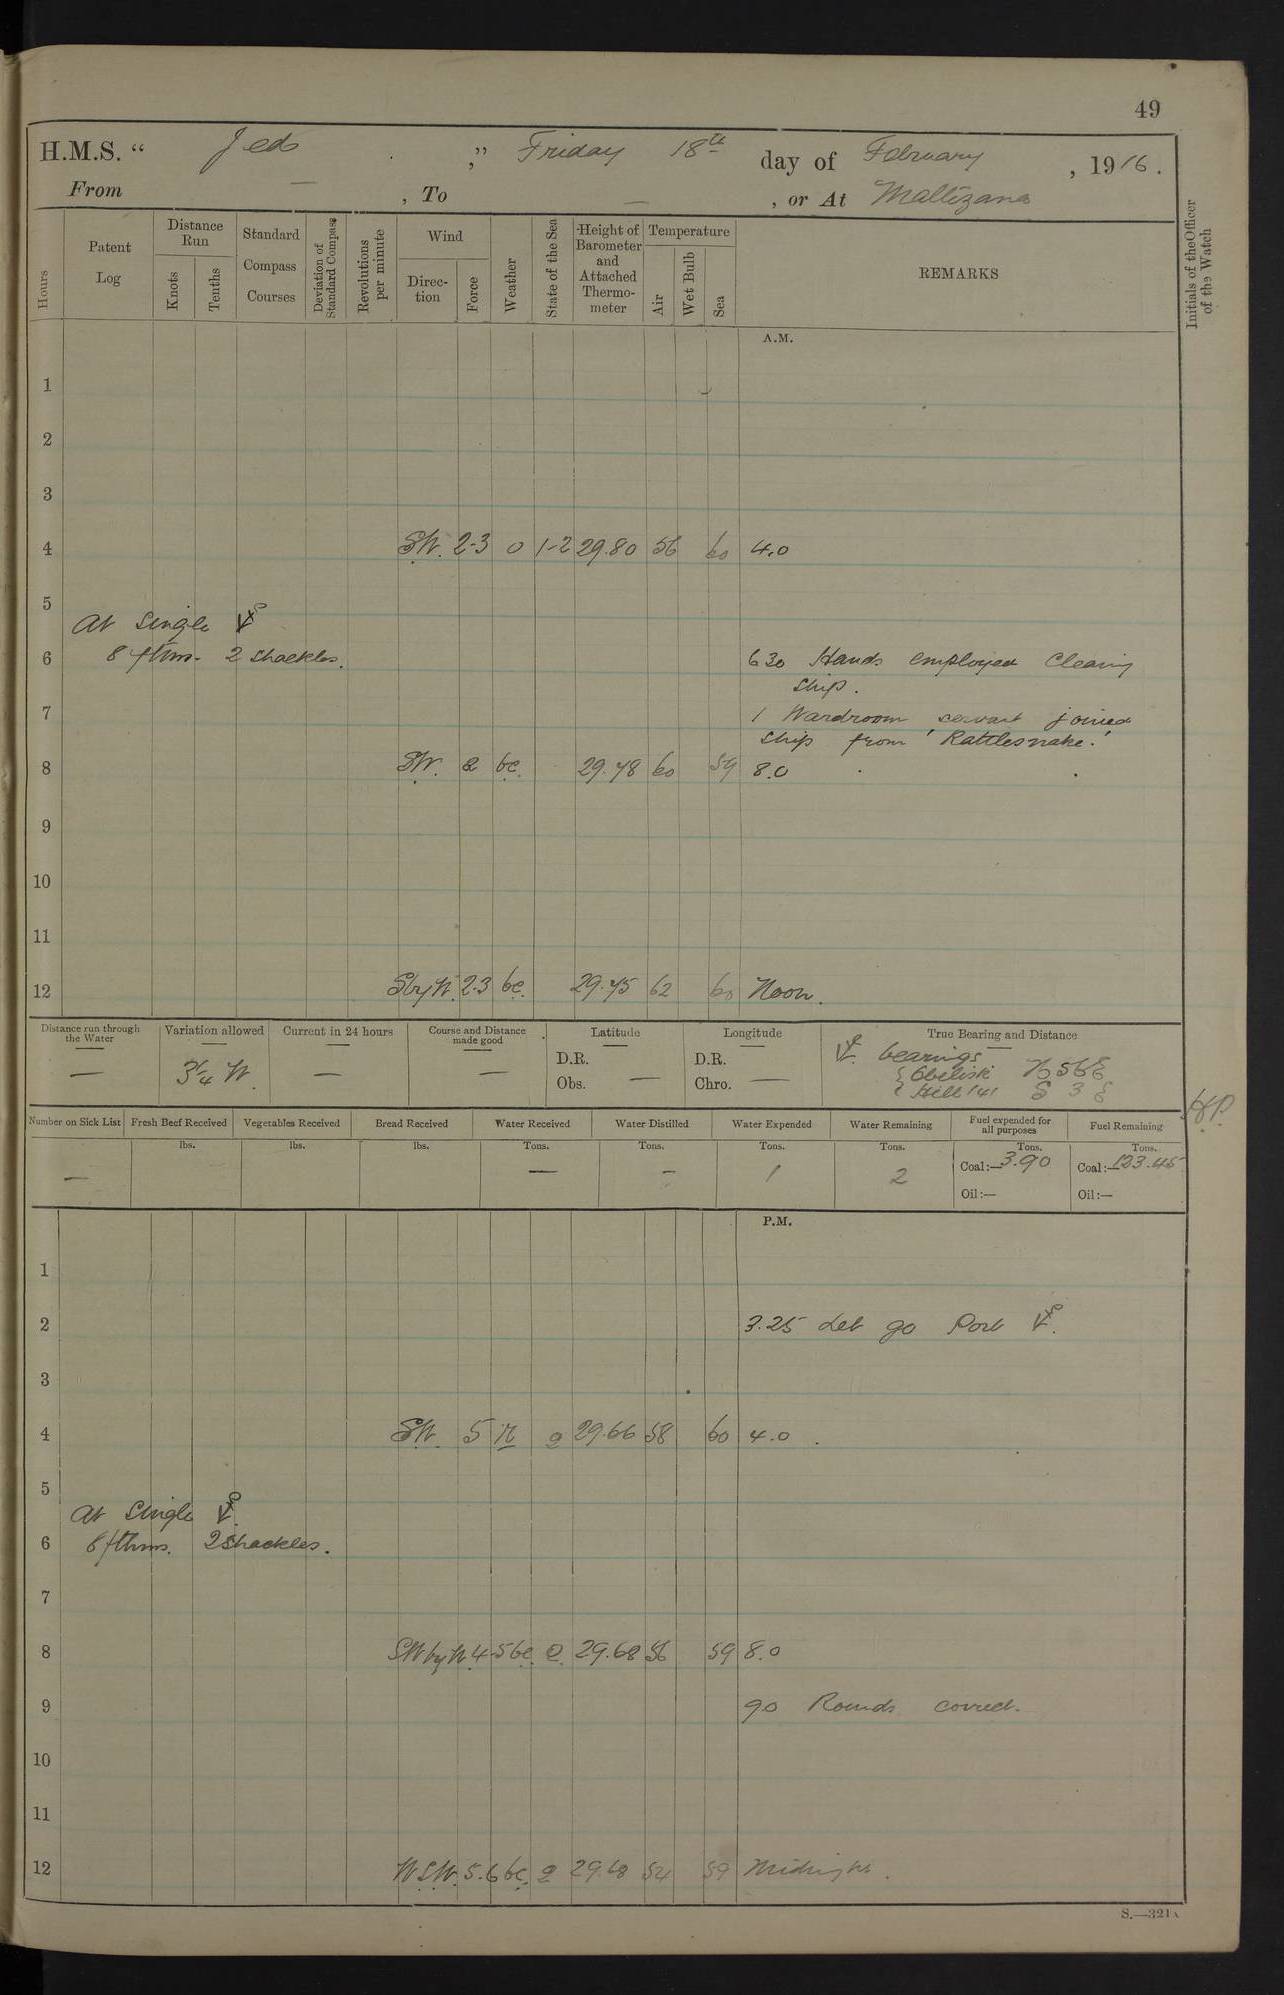 49
H.M.S. " Jed ," Friday 18th day of February, 1916.
From — , To — , or At Maltezana
Hours
Patent Log
Distance Run
Knots
Tenths
Standard Compass Courses
Deviation of Standard Compass
Revolutions per minute
Wind
Direction
Force
Weather
State of the Sea
Height of Barometer and Attached Thermometer
Temperature
Air
Wet Bulb
Sea
REMARKS
Initials of the Officer of the Watch
A.M.
1
2
3
4 SW. 2-3 o 1-2 29.80 56 60 4.0
5
At Single
6 8 fthms. 2 shackles. 6 30 Hands employed Cleaning
ship.
7 1 Wardroom servant joined
ship from 'Rattlesnake.'
8 SW. 2 bc. 29.78 60 59 8.0
9
10
11
12 SbyW. 2.3 bc. 29.75 62 60 Noon.
Distance run through the Water
—
Variation allowed
3¼ W.
Current in 24 hours
—
Course and Distance made good
—
Latitude
D.R.
Obs. —
Longitude
D.R.
Chro. —
True Bearing and Distance
bearings
{ Obelisk N 56 E
{ Hill 141 S 3 E
Number on Sick List
—
Fresh Beef Received
lbs.
Vegetables Received
lbs.
Bread Received
lbs.
Water Received
Tons.
—
Water Distilled
Tons.
—
Water Expended
Tons.
1
Water Remaining
Tons.
2
Fuel expended for all purposes
Tons.
Coal:— 3.90
Oil:—
Fuel Remaining
Tons.
Coal:— 133.45
Oil:—
P.M.
1
2 3.25 Let go Port
3
4 SW. 5 2 29.66 58 60 4.0
5
At Single
6 8 fthms. 2 Shackles.
7
8 SWbyW. 4-5 bc. 2 29.68 56 59 8.0
9 9 0 Rounds correct.
10
11
12 WSW. 5.6 bc. 2 29.68 54 59 Midnight.
S.—321A